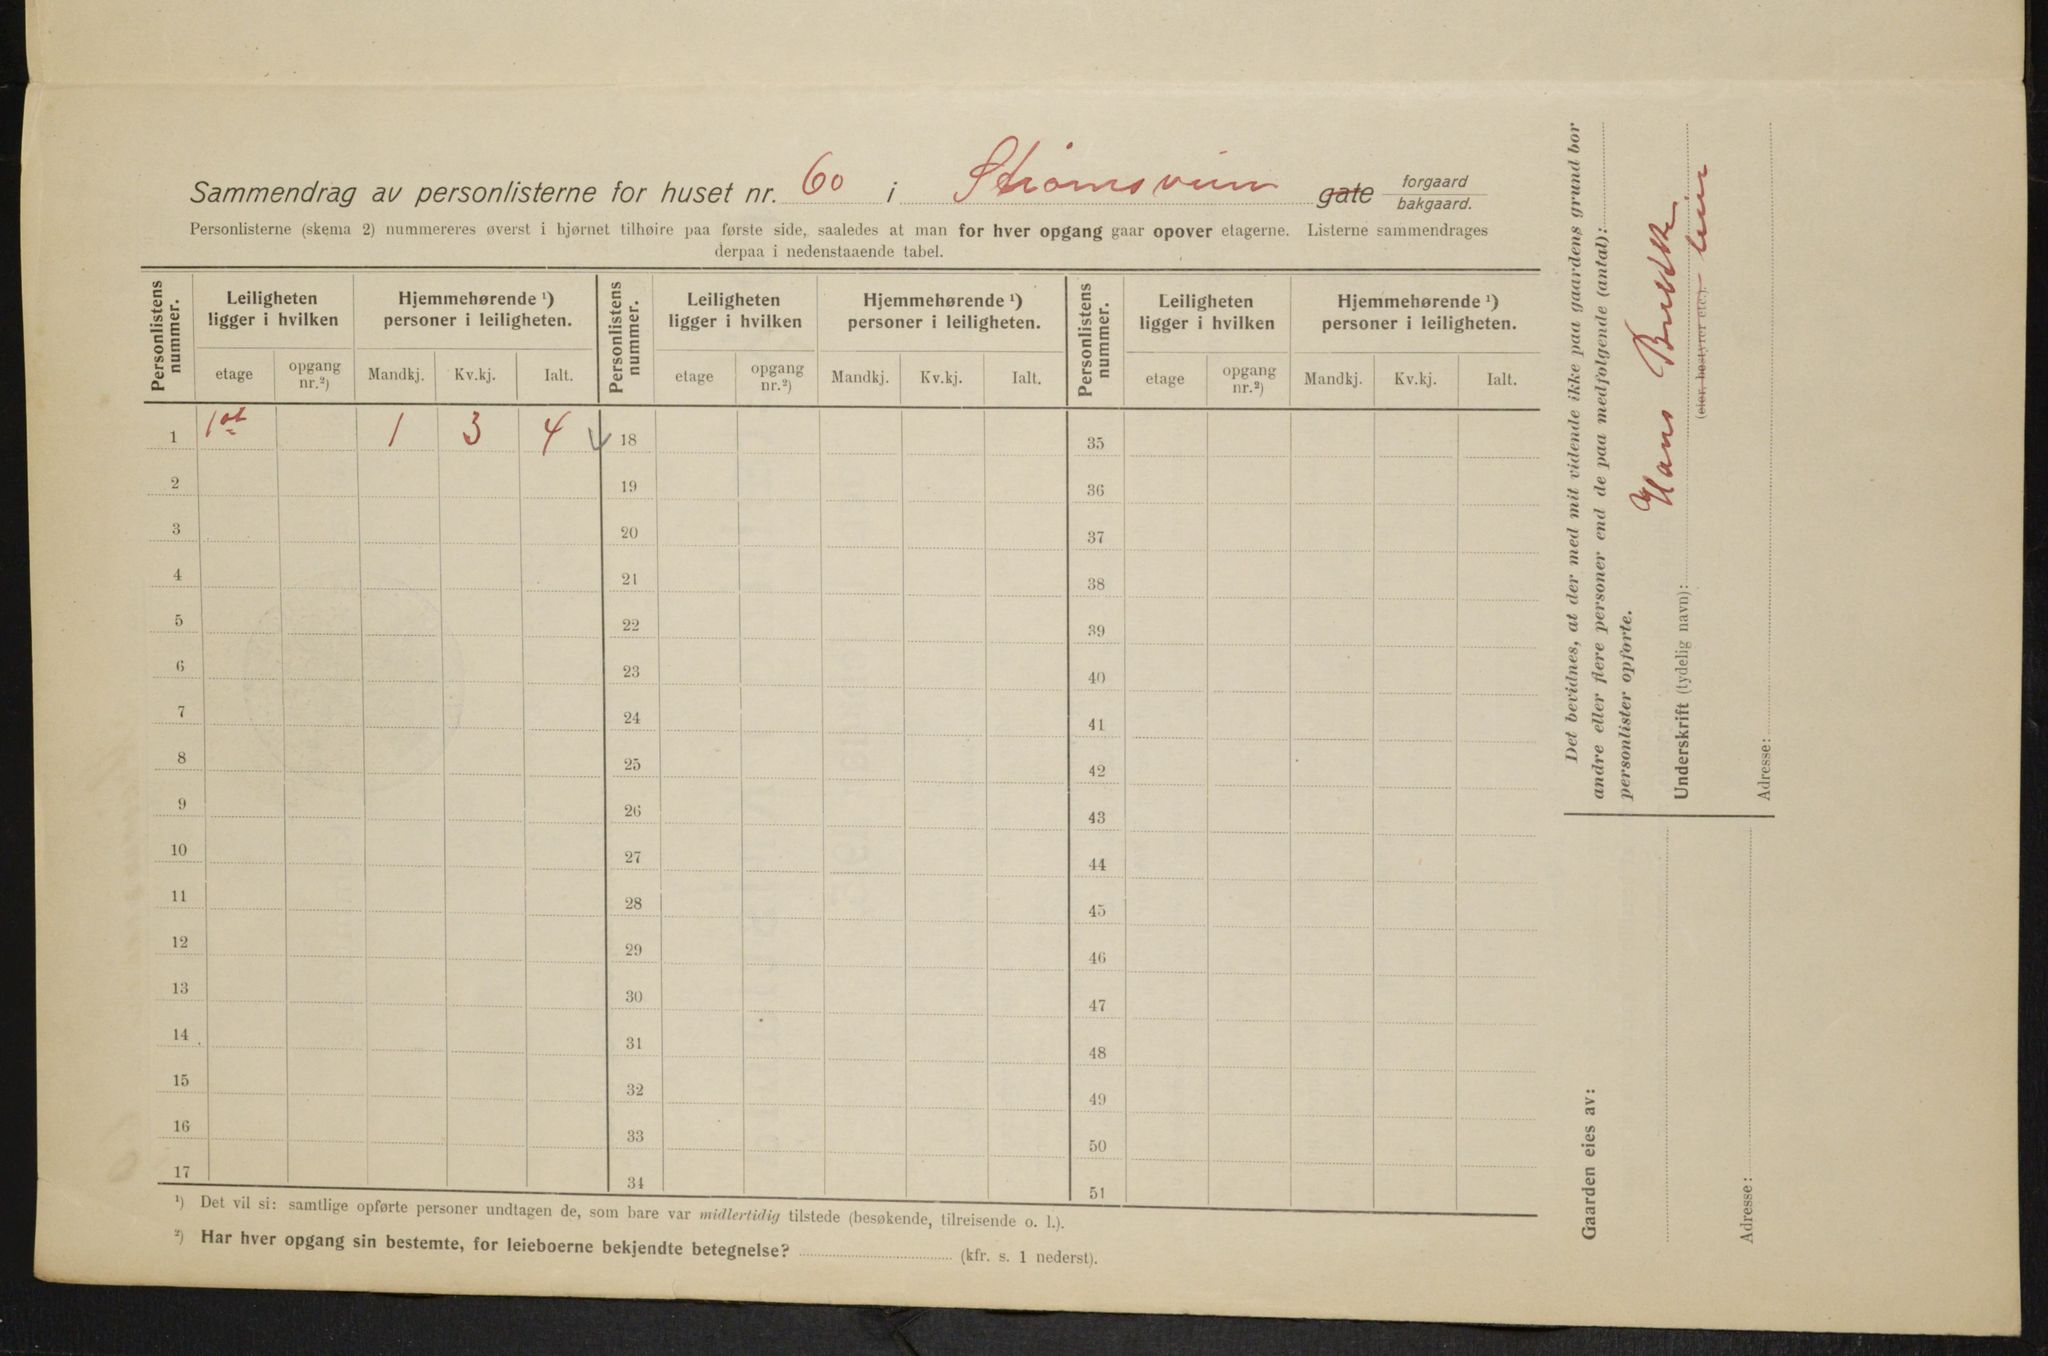 Sammendrag av personlisterne for huset nr. 60 i Strømsveien gate forgaard bakgaard.
Personlisterne (skema 2) nummereres øverst i hjørnet tilhøire paa første side, saaledes at man for hver opgang gaar opover etagerne. Listerne sammendrages
derpaa i nedenstaaende tabel.
Personlistens nummer. Leiligheten ligger i hvilken Hjemmehørende ¹) personer i leiligheten. Personlistens nummer. Leiligheten ligger i hvilken Hjemmehørende ¹) personer i leiligheten. Personlistens nummer. Leiligheten ligger i hvilken Hjemmehørende ¹) personer i leiligheten.
etage opgang nr.²) Mandkj. Kv.kj. Ialt. etage opgang nr.²) Mandkj. Kv.kj. Ialt. etage opgang nr.²) Mandkj. Kv.kj. Ialt.
1 1st 1 3 4 18 35
2 19 36
3 20 37
4 21 38
5 22 39
6 23 40
7 24 41
8 25 42
9 26 43
10 27 44
11 28 45
12 29 46
13 30 47
14 31 48
15 32 49
16 33 50
17 34 51
¹) Det vil si: samtlige opførte personer undtagen de, som bare var midlertidig tilstede (besøkende, tilreisende o. l.).
²) Har hver opgang sin bestemte, for leieboerne bekjendte betegnelse? (kfr. s. 1 nederst).
Det bevidnes, at der med mit vidende ikke paa gaardens grund bor
andre eller flere personer end de paa medfølgende (antal):
personlister opførte.
Underskrift (tydelig navn): Hans
(eier, bestyrer etc.)
Adresse:
Gaarden eies av:
Adresse: